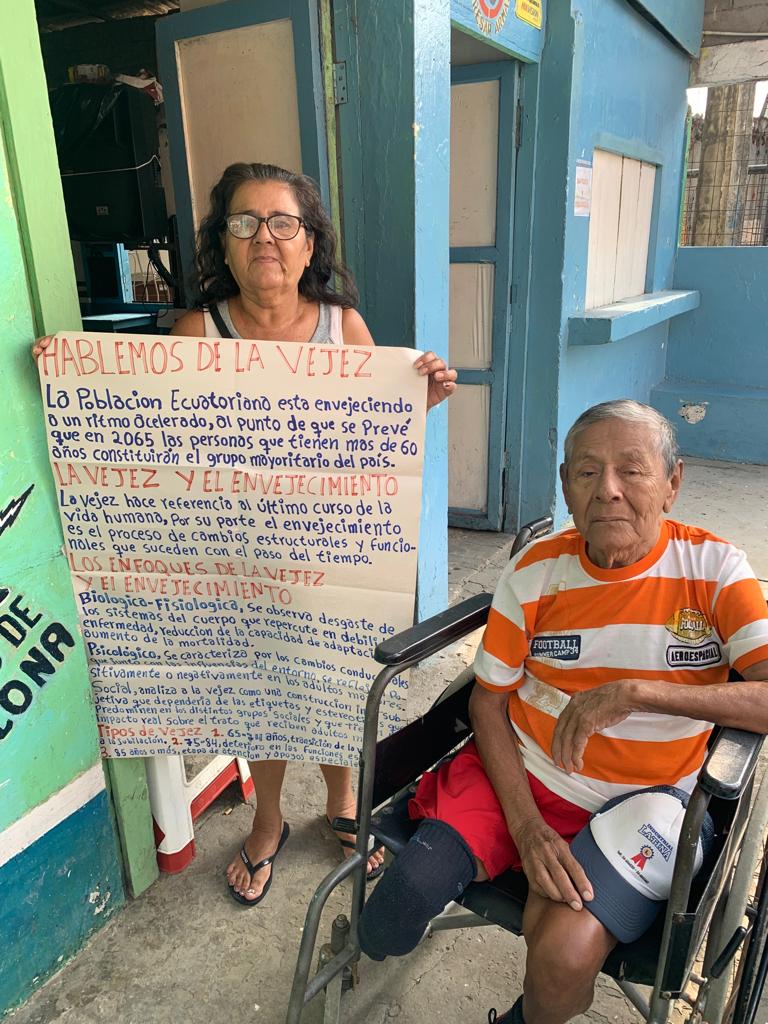 HABLEMOS DE LA VEJEZ
La Poblacion Ecuatoriana esta envejeciendo
a un ritmo acelerado, al punto de que se Prevé
que en 2065 las personas que tienen mas de 60
años constituirán el grupo mayoritario del país.
LA VEJEZ Y EL ENVEJECIMIENTO
La vejez hace referencia al último curso de la
vida humana, Por su parte el envejecimiento
es el proceso de cambios estructurales y funcio-
nales que suceden con el paso del tiempo.
LOS ENFOQUES DE LA VEJEZ
Y EL ENVEJECIMIENTO
Biologica-Fisiologica, se observa desgaste de
los sistemas del cuerpo que repercute en debili
enfermedad, reduccion de la capacidad de adaptac
aumento de la mortalidad.
Psicologico, se caracteriza por los cambios conductuales
que junto con las influencias del entorno, se
sitivamente o negativamente en los adultos
Social, analiza a la vejez como una construccion
jetiva que dependeria de las etiquetas y estereot
Predominen en los distintos grupos Sociales y que
impacto real sobre el trato que reciben adultos
Tipos de vejez 1. 65-74 años, transición de la
a la jubilación. 2. 75-84, deterioro en las funciones
3. 85 años o más, etapa de atención y apoyos especiale
DE
LONA
FOOTBALL
SUMMER CAMP 34
AEROESPACIAL
INDUSTRIAL
LATINA